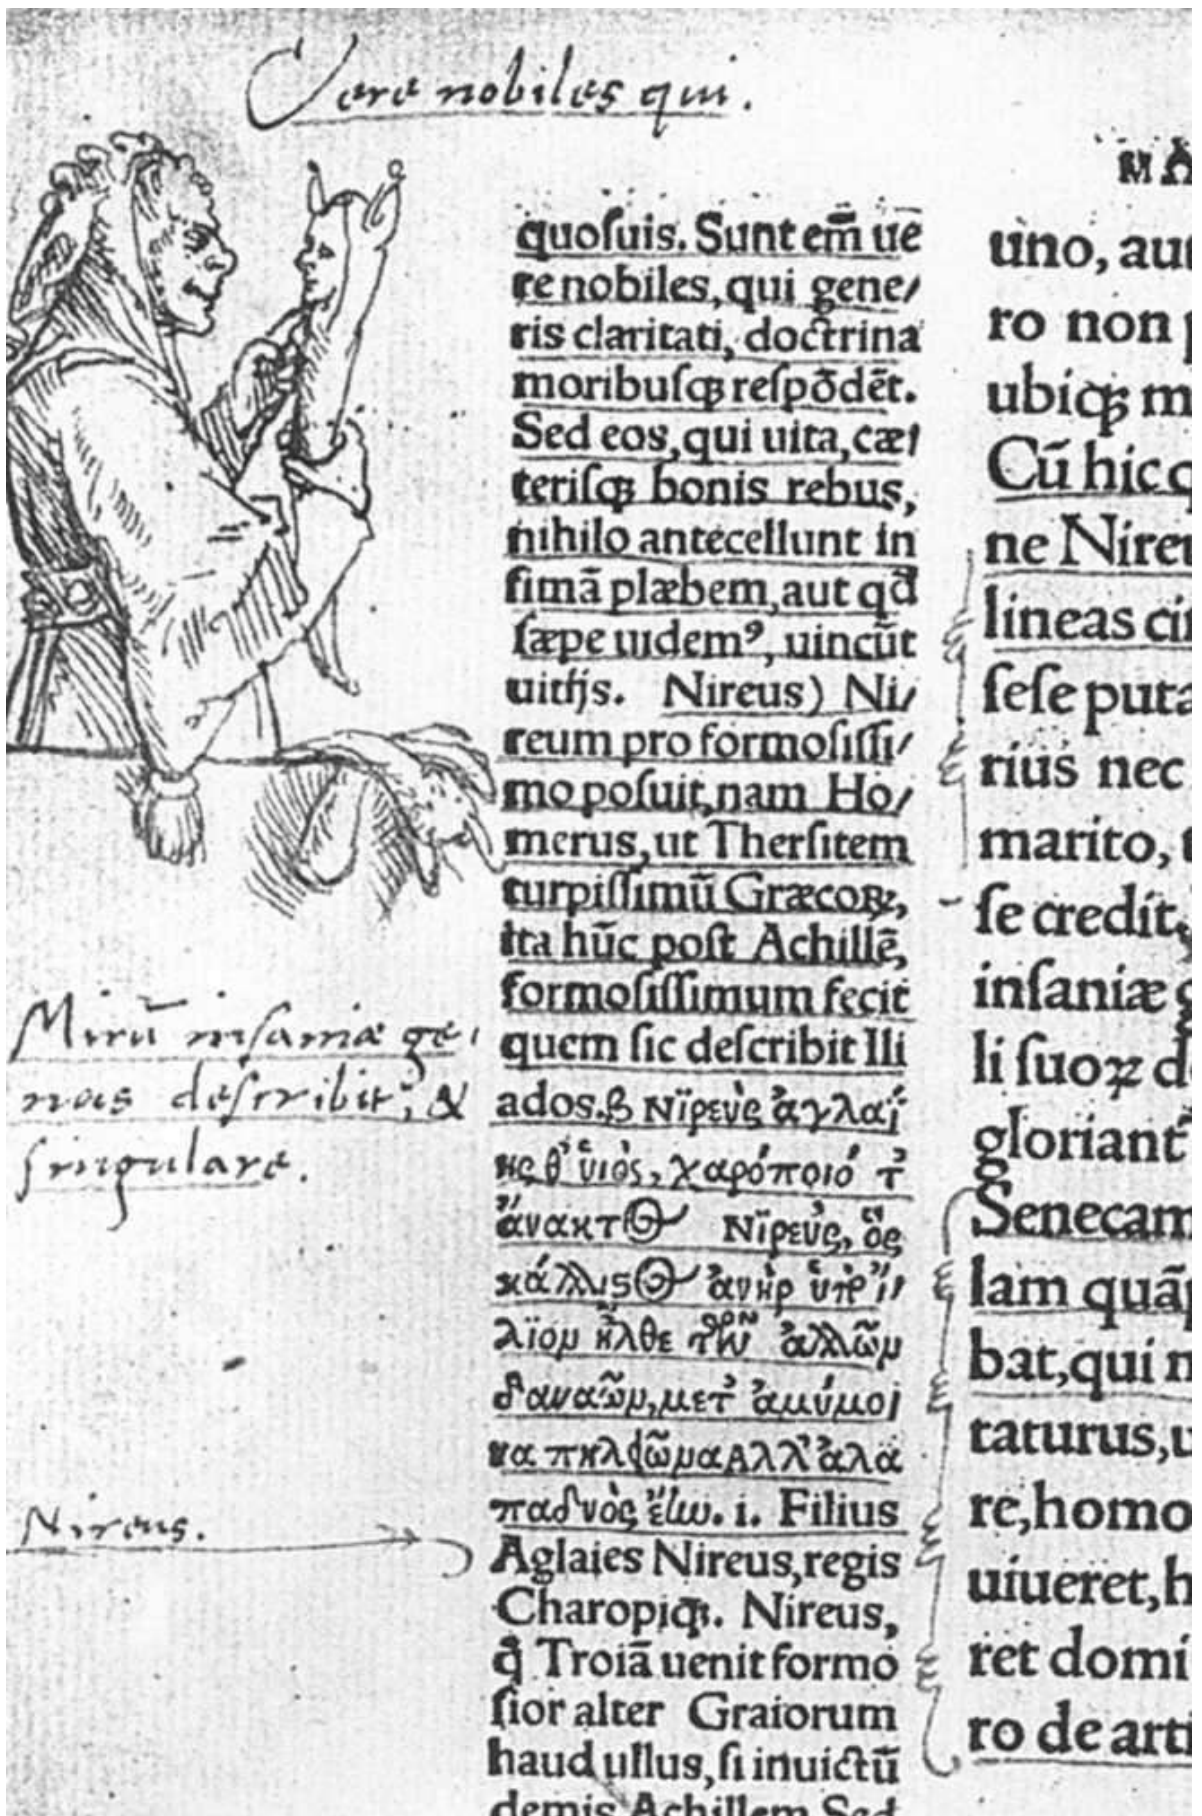 Vere nobiles qui.
quoſuis. Sunt em̄ ue
re nobiles, qui gene/
ris claritati, doctrina
moribuſqꝫ reſpōdēt.
Sed eos, qui uita, cæ/
teriſqꝫ bonis rebus,
nihilo antecellunt in
fimā plæbem, aut qď
ſæpe uidemꝰ, uincūt
uitijs. Nireus) Ni/
reum pro formoſiſſi/
mo poſuit, nam Ho/
merus, ut Therſitem
turpiſſimū Græcoꝝ,
ita hūc poſt Achillē,
formoſiſſimum fecit
quem ſic deſcribit Ili
ados. β Νϊρεὺς ἀγλαΐ
ης θ' ὑιὸς, χαρόποιό τ'
ἄνακτος Νϊρεὺς, ὃς
κάλλιστος ἀνὴρ ὑπὸ ἴ/
λϊομ ἦλθε τῶν ἀλλῶμ
δαναῶμ, μετ' ἀμύμο
να πηλϕῶμα Αλλ' ἀλα
παδνὸς ἔην. i. Filius
Aglaies Nireus, regis
Charopiqꝫ. Nireus,
q̄ Troiā uenit formo
ſior alter Graiorum
haud ullus, ſi inuictū
demis Achillem Sed
Mirū inſaniæ ge-
nus deſcribit, &
ſingulare.
Nireus.
MA
uno, aut
ro non
ubiqꝫ m
Cū hic q
ne Nireu
lineas cir
ſeſe puta
rius nec
marito, t
ſe credit,
inſaniæ g
li ſuoꝝ d
gloriant
Senecam
lam quāp
bat, qui n
taturus, u
re, homo
uiueret, h
ret domi
ro de arti